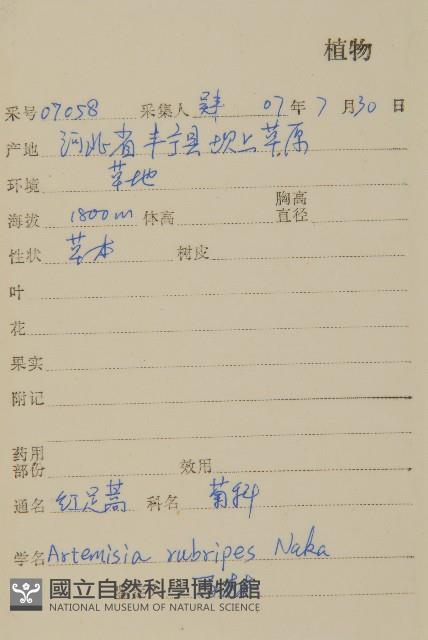 植物
采号 07058 采集人 07年 7月30日
产地 河北省丰宁县坝上草原
环境 草地
海拔 1800m 体高 胸高直径
性状 草本 树皮
叶
花
果实
附记
药用部份 效用
通名 红足蒿 科名 菊科
学名 Artemisia rubripes Naka
國立自然科學博物館
NATIONAL MUSEUM OF NATURAL SCIENCE